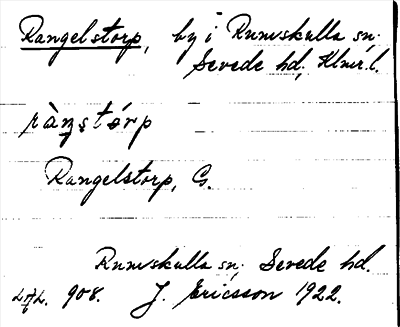 Rangelstorp, by i Rumskulla sn,
Sevede hd, Klmr. l.
ràŋstórp
Rangelstorp, G.
Rumskulla sn, Sevede hd.
908. J. Ericsson 1922.